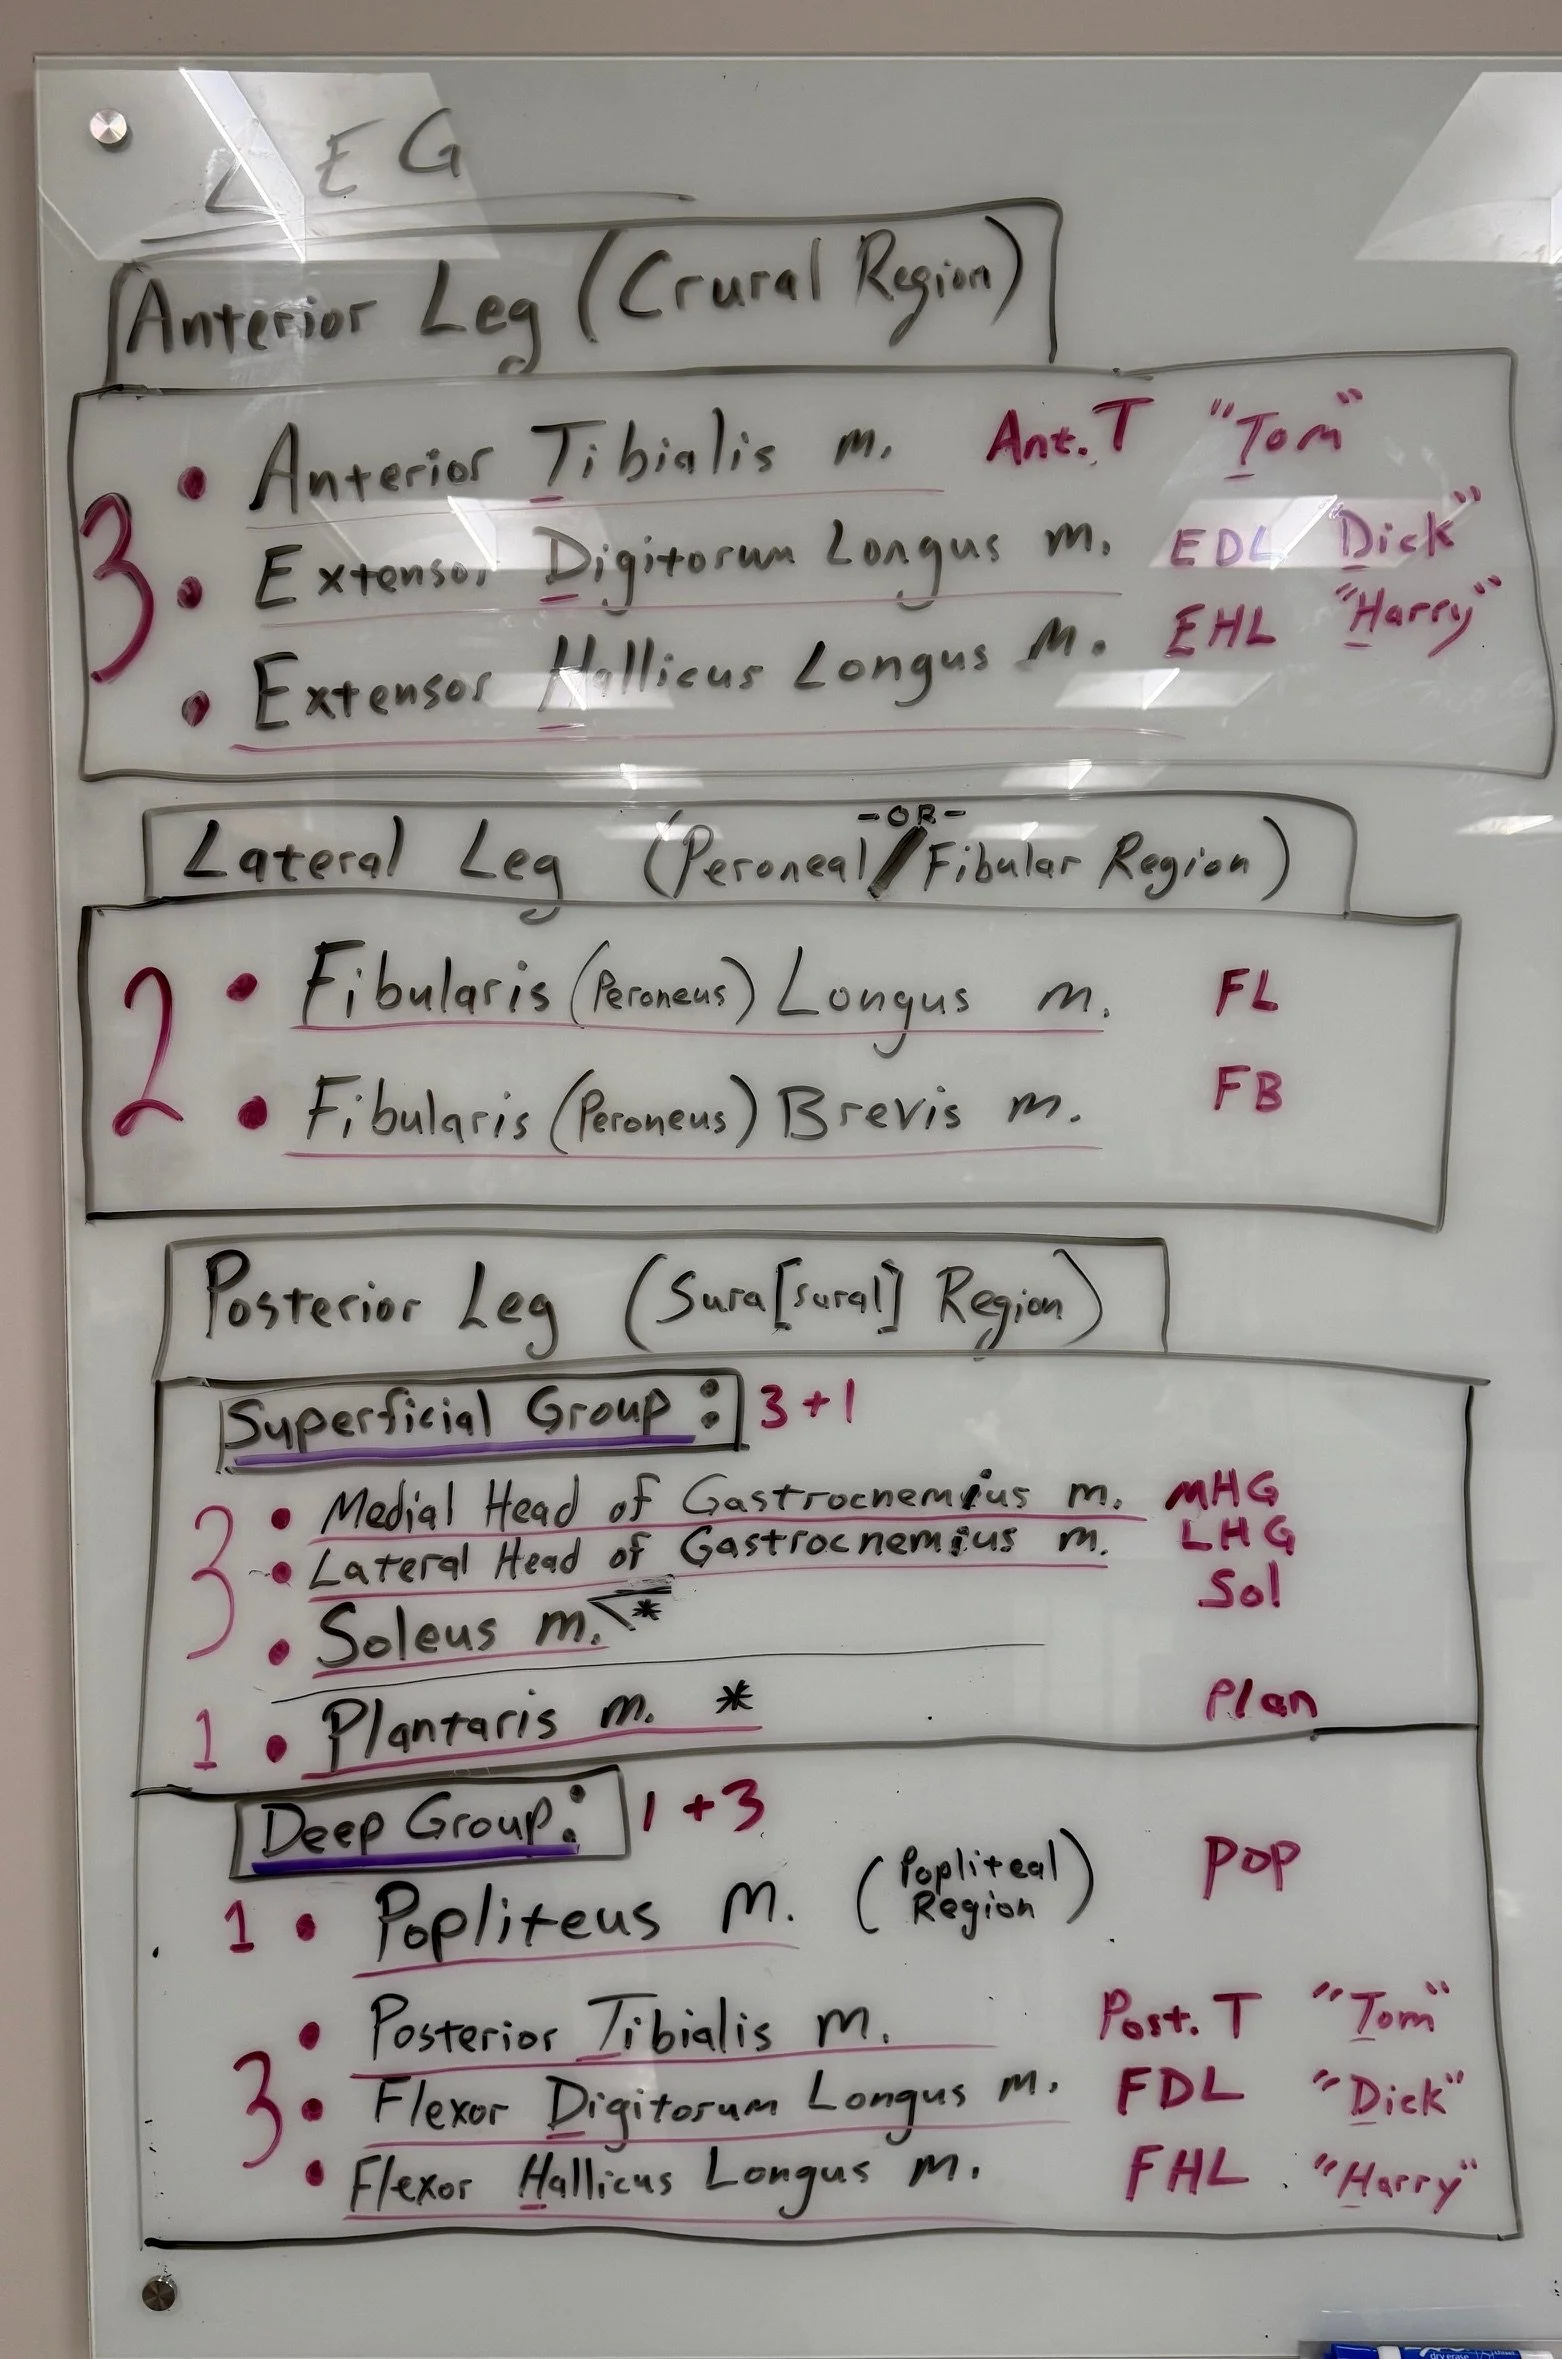 LEG
Anterior Leg (Crural Region)
3
• Anterior Tibialis m. Ant. T "Tom"
• Extensor Digitorum Longus m. EDL Dick"
• Extensor Hallicus Longus m. EHL "Harry"
-OR-
Lateral Leg (Peroneal/Fibular Region)
2
• Fibularis (Peroneus) Longus m. FL
• Fibularis (Peroneus) Brevis m. FB
Posterior Leg (Sura[sural] Region)
Superficial Group: 3+1
3
• Medial Head of Gastrocnemius m. MHG
• Lateral Head of Gastrocnemius m. LHG
• Soleus m. * Sol
1 • Plantaris m. * Plan
Deep Group: 1+3
1 • Popliteus m. (Popliteal Region) POP
3
• Posterior Tibialis m. Post. T "Tom"
• Flexor Digitorum Longus m. FDL "Dick"
• Flexor Hallicus Longus m. FHL "Harry"
dry erase